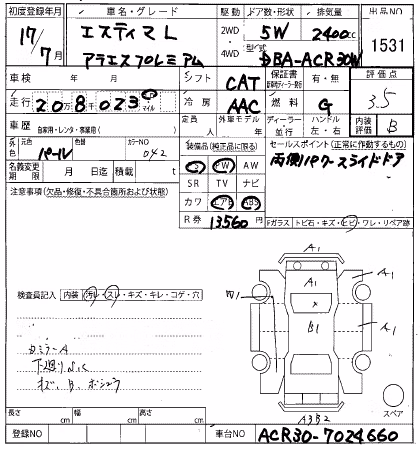 初度登録年月 車名・グレード 駆動 ドア数・形状 排気量 出品NO
17/7月 エスティマL 2WD 5W 2400cc 1531
アエラスプレミアム 4WD 型式 DBA-ACR30W
車検 年 月 シフト CAT 保証書 有・無 評価点
走行 208千023 マイル 冷房 AAC 燃料 G 3.5
車歴 自家用・レンタ・事業用( ) 定員 人 外車モデル 年 ディーラー・並行 ハンドル 左・右 内装評価 B
外色 元色 パール 色替 カラーNO 042
装備品(純正品に限る) セールスポイント(正常に作動するもの)
名義変更期限 月 日迄 積載 t PW AW
両側パワースライドドア
注意事項(欠品・修復・不具合箇所および状態) SR TV ナビ
カワ エアB ABS
R券 13560円 Fガラス トビ石・キズ・ヒビ・ワレ・リペア跡
A1
A1
A1
検査員記入 内装 汚レ・スレ・キズ・キレ・コゲ・穴
B1
A1
カミラーA
下廻りS,C
キズ、B、ボシュウ
スペア
長さ cm 幅 cm 高さ cm
A3B2
登録NO 車台NO ACR30-7024660